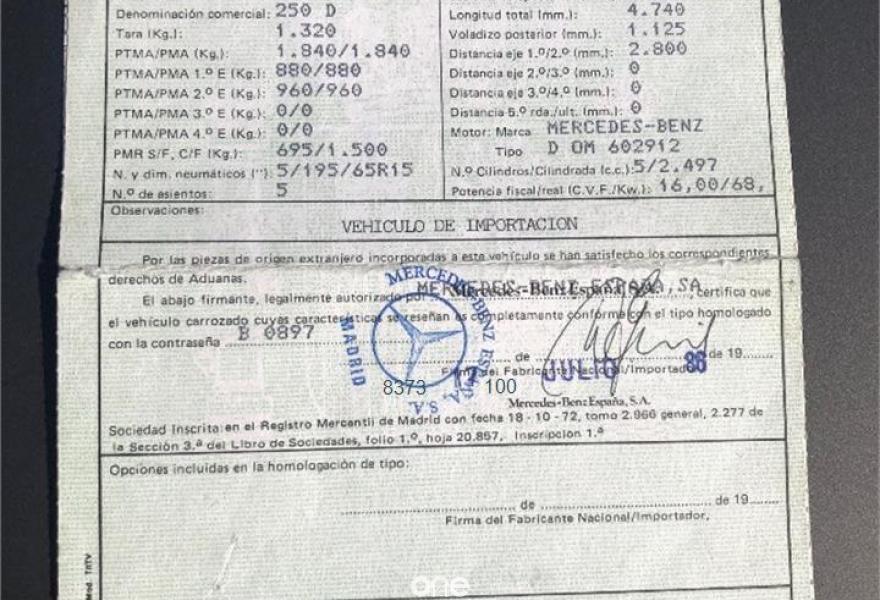 Denominación comercial: 250 D
Tara (Kg.): 1.320
PTMA/PMA (Kg.): 1.840/1.840
PTMA/PMA 1.º E (Kg.): 880/880
PTMA/PMA 2.º E (Kg.): 960/960
PTMA/PMA 3.º E (Kg.): 0/0
PTMA/PMA 4.º E (Kg.): 0/0
PMR S/F, C/F (Kg.): 695/1.500
N. y dim. neumáticos (''): 5/195/65R15
N.º de asientos: 5
Longitud total (mm.): 4.740
Voladizo posterior (mm.): 1.125
Distancia eje 1.º/2.º (mm.): 2.800
Distancia eje 2.º/3.º (mm.): 0
Distancia eje 3.º/4.º (mm.): 0
Distancia 5.º rda./ult. (mm.): 0
Motor: Marca MERCEDES-BENZ
Tipo D OM 602912
N.º Cilindros/Cilindrada (c.c.): 5/2.497
Potencia fiscal/real (C.V.F./Kw.): 16,00/68,
Observaciones:
VEHICULO DE IMPORTACION
Por las piezas de origen extranjero incorporadas a este vehículo se han satisfecho los correspondientes
derechos de Aduanas.
El abajo firmante, legalmente autorizado por MERCEDES-BENZ ESPAÑA, SA, certifica que
el vehículo carrozado cuyas características se reseñan es completamente conforme con el tipo homologado
con la contraseña B 0897
de JULIO de 19 88
Firma del Fabricante Nacional/Importador
8373 100
MERCEDES-BENZ ESPAÑA, S.A.
MADRID
Mercedes-Benz España, S.A.
Sociedad Inscrita en el Registro Mercantil de Madrid con fecha 18-10-72, tomo 2.966 general, 2.277 de
la Sección 3.ª del Libro de Sociedades, folio 1.º, hoja 20.857, Inscripción 1.ª
Opciones incluidas en la homologación de tipo:
de de 19
Firma del Fabricante Nacional/Importador.
one